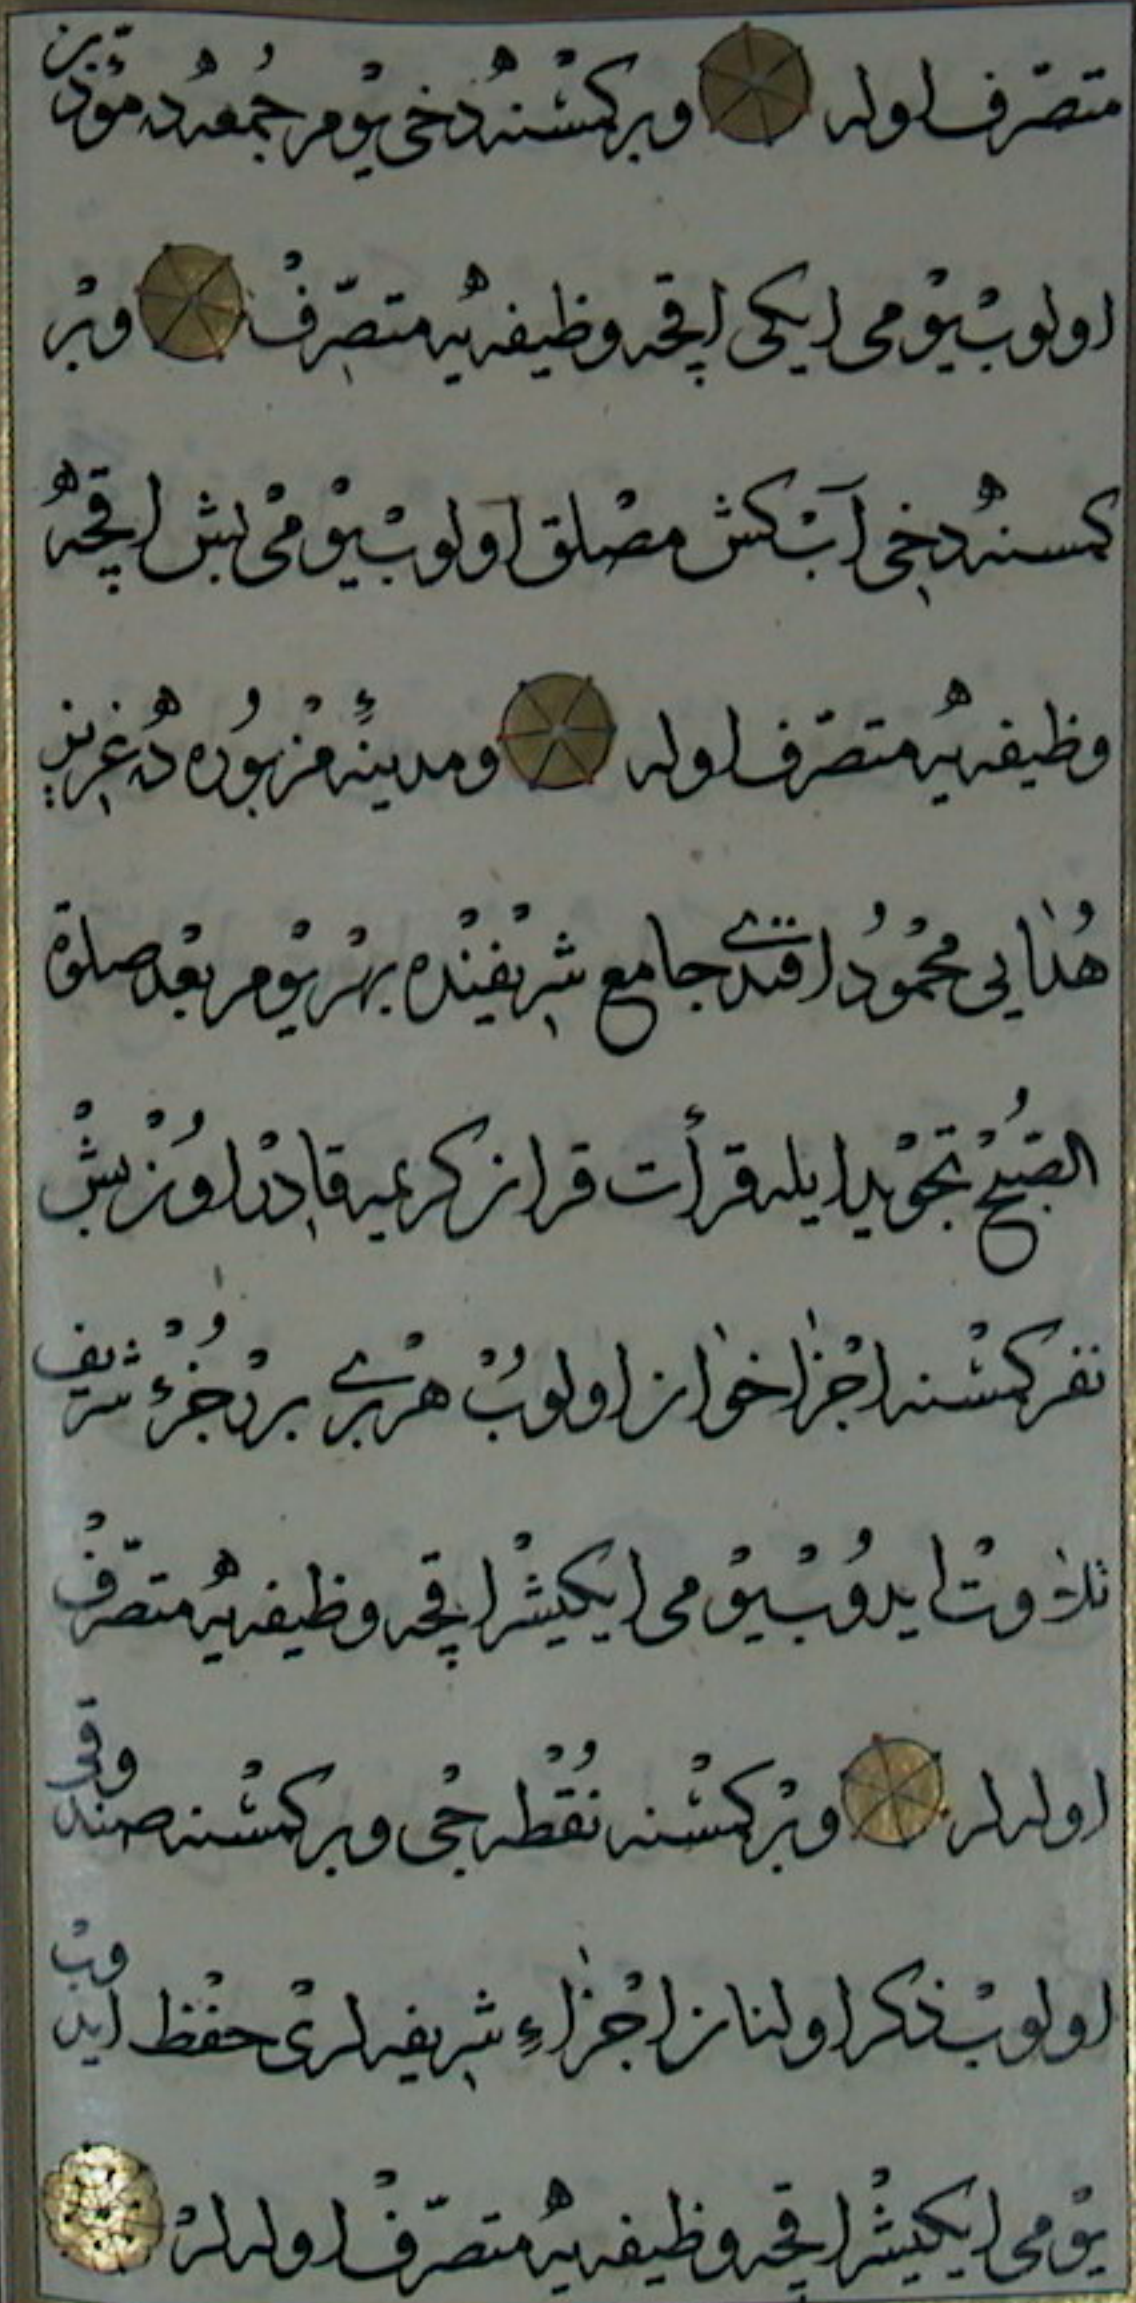 متصرف اوله وبر كمسنه دخی يوم جمعه ده مؤذن
اولوب يومی ايكی اقچه وظيفه يه متصرف وبر
كمسنه دخی آبكش مصلق اولوب يومی بش اقچه
وظيفه يه متصرف اوله ومدينهٔ مزبوره ده عزيز
هدايی محمود افندی جامع شريفنده بهر يوم بعد صلوة
الصبح تجويد ايله قرأت قران كريمه قادر اوز بش
نفر كمسنه اجزا خوان اولوب هر بری بر جزء شريف
تلاوت ايدوب يومی ايكيشر اقچه وظيفه يه متصرف
اوله لر وبر كمسنه نقطه جی وبر كمسنه صندوقی
اولوب ذكر اولنان اجزاء شريفه لری حفظ ايدوب
يومی ايكيشر اقچه وظيفه يه متصرف اوله لر